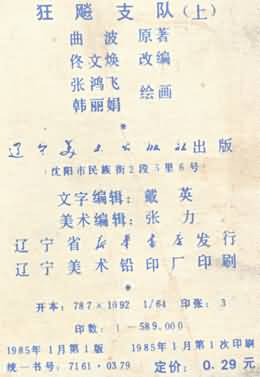 狂飚支队(上)
曲波 原著
佟文焕 改编
张鸿飞
韩丽娟 绘画
辽宁美术出版社出版
沈阳市民族街2段5里6号
文字编辑：戴英
美术编辑：张力
辽宁省新华书店发行
辽宁美术铅印厂印刷
开本：787×1092 1/64 印张：3
印数：1—589,000
1985年1月第1版 1985年1月第1次印刷
统一书号：7161·0379 定价：0.29元